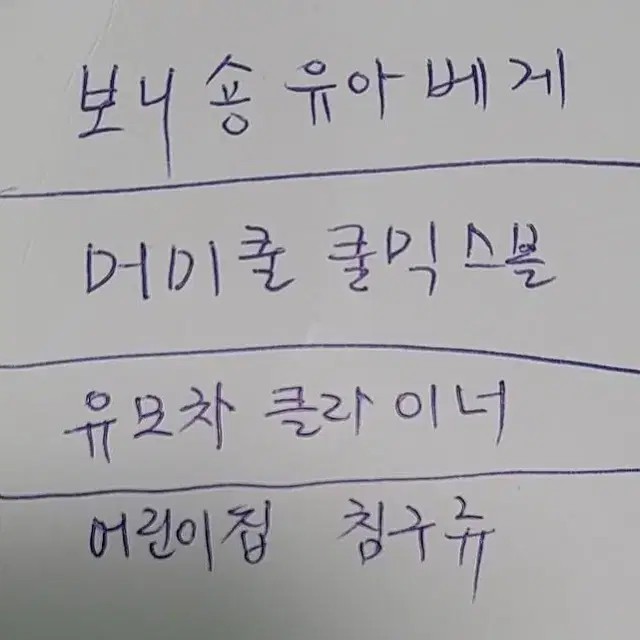 보니송 유아베게
머미쿨 쿨믹스볼
유모차 클라이너
어린이집 침구류